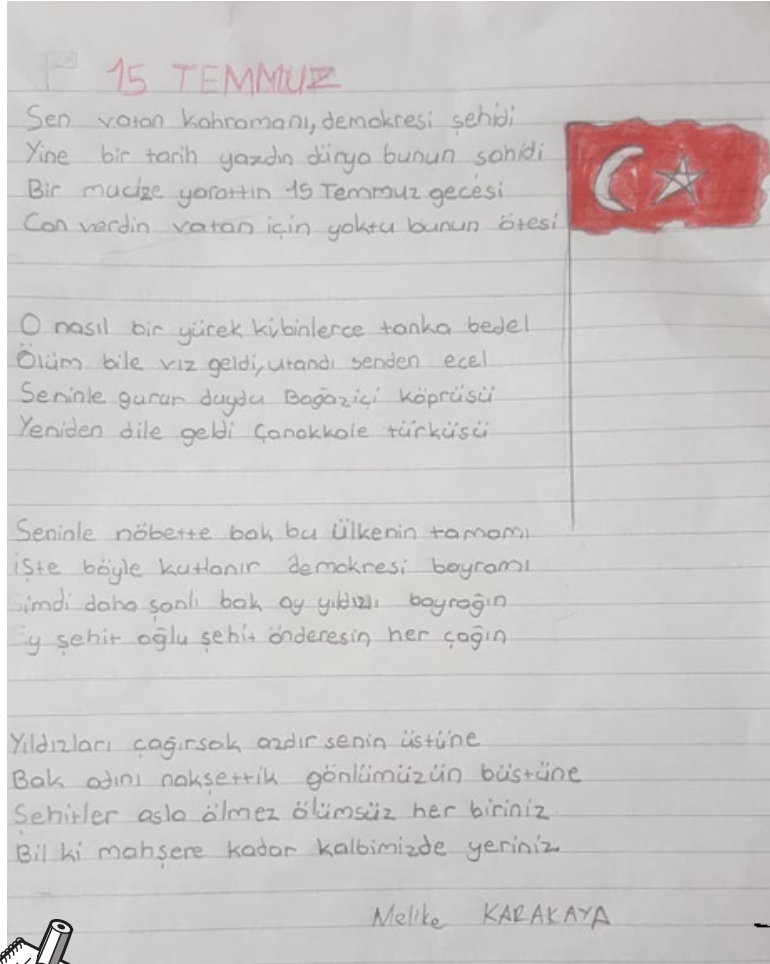 15 TEMMUZ
Sen vatan kahramanı, demokresi şehidi
Yine bir tarih yazdın dünya bunun şahidi
Bir mucize yarattın 15 Temmuz gecesi
Can verdin vatan için yoktu bunun ötesi
O nasıl bir yürek kibinlerce tanka bedel
Ölüm bile vız geldi, utandı senden ecel
Seninle gurur duydu Boğaziçi köprüsü
Yeniden dile geldi Çanakkale türküsü
Seninle nöbette bak bu ülkenin tamamı
işte böyle kutlanır demokresi bayramı
imdi daha şanlı bak ay yıldızlı bayrağın
y şehit oğlu şehit önderesin her çağın
Yıldızları çağırsak azdır senin üstüne
Bak adını nakşettik gönlümüzün büstüne
Şehitler asla ölmez ölümsüz her biriniz.
Bil ki mahşere kadar kalbimizde yeriniz.
Melike KARAKAYA